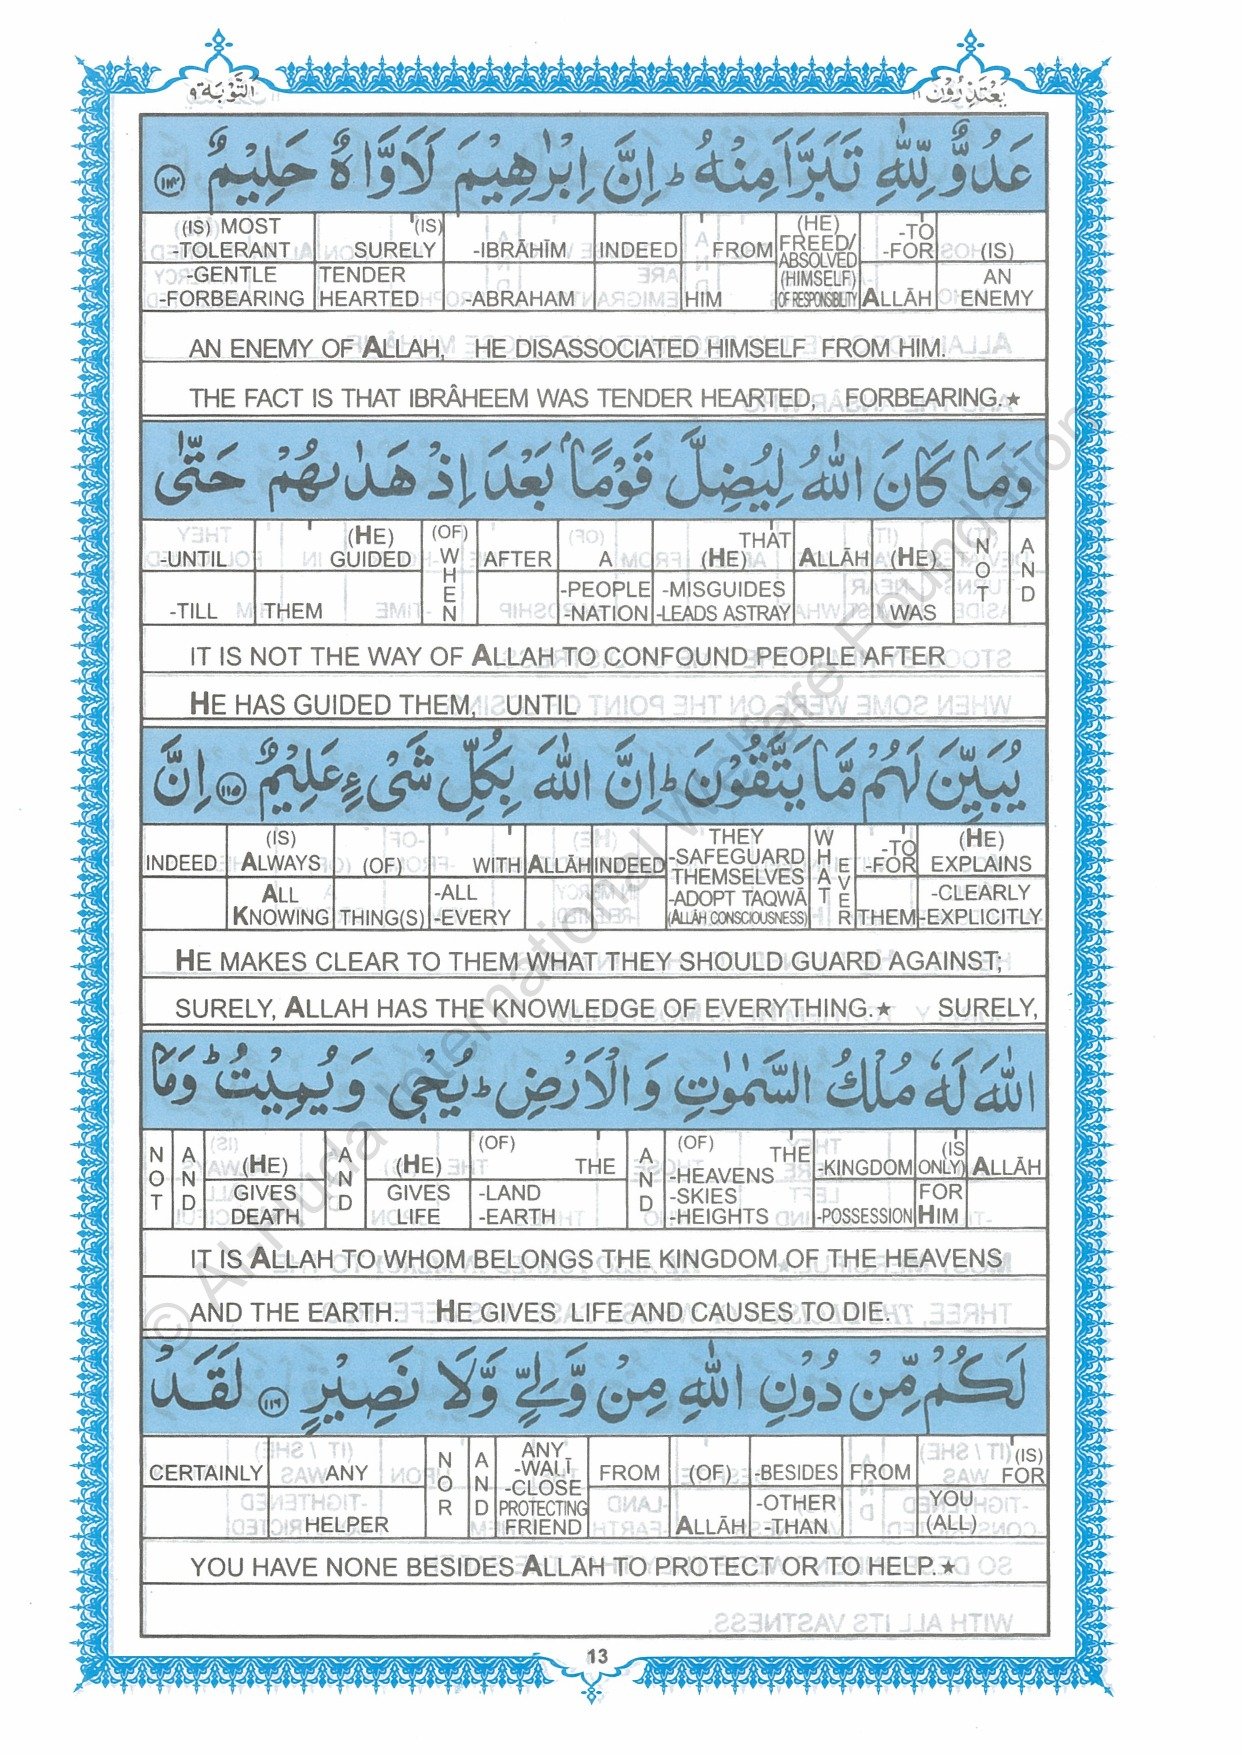 يَعْتَذِرُوْنَ ١١
اَلتَّوْبَة ٩
عَدُوٌّ لِّلّٰهِ تَبَرَّاَ مِنْهُ ؕ اِنَّ اِبْرٰهِيْمَ لَاَوَّاهٌ حَلِيْمٌ ۝۱۱۴
(IS) MOST -TOLERANT | SURELY (IS) | -IBRĀHĪM | INDEED | FROM | (HE) FREED/ ABSOLVED (HIMSELF) OF RESPONSIBILITY | -TO -FOR | (IS)
-GENTLE -FORBEARING | TENDER HEARTED | -ABRAHAM | HIM | ALLĀH | AN ENEMY
AN ENEMY OF ALLAH, HE DISASSOCIATED HIMSELF FROM HIM.
THE FACT IS THAT IBRÂHEEM WAS TENDER HEARTED, FORBEARING.★
وَمَا كَانَ اللّٰهُ لِيُضِلَّ قَوْمًۢا بَعْدَ اِذْ هَدٰىهُمْ حَتّٰى
-UNTIL | (HE) GUIDED | (OF) WHEN | AFTER | A | THAT (HE) | ALLĀH | (HE) | NOT | AND
-TILL | THEM | -PEOPLE -NATION | -MISGUIDES -LEADS ASTRAY | WAS
IT IS NOT THE WAY OF ALLAH TO CONFOUND PEOPLE AFTER
HE HAS GUIDED THEM, UNTIL
يُبَيِّنَ لَهُمْ مَّا يَتَّقُوْنَ ؕ اِنَّ اللّٰهَ بِكُلِّ شَىْءٍ عَلِيْمٌ ۝۱۱۵ اِنَّ
INDEED | (IS) ALWAYS | (OF) | WITH | ALLĀH | INDEED | THEY -SAFEGUARD THEMSELVES -ADOPT TAQWĀ (ALLĀH CONSCIOUSNESS) | WHAT EVER | -TO -FOR | (HE) EXPLAINS
ALL KNOWING | THING(S) | -ALL -EVERY | THEM | -CLEARLY -EXPLICITLY
HE MAKES CLEAR TO THEM WHAT THEY SHOULD GUARD AGAINST;
SURELY, ALLAH HAS THE KNOWLEDGE OF EVERYTHING.★ SURELY,
اللّٰهَ لَهٗ مُلْكُ السَّمٰوٰتِ وَالْاَرْضِ ؕ يُحْىٖ وَيُمِيْتُ ؕ وَمَا
NOT | AND | (HE) | AND | (HE) | (OF) THE | AND | (OF) THE -HEAVENS -SKIES -HEIGHTS | -KINGDOM | (IS ONLY) | ALLĀH
GIVES DEATH | GIVES LIFE | -LAND -EARTH | -POSSESSION | FOR HIM
IT IS ALLAH TO WHOM BELONGS THE KINGDOM OF THE HEAVENS
AND THE EARTH. HE GIVES LIFE AND CAUSES TO DIE.
لَكُمْ مِّنْ دُوْنِ اللّٰهِ مِنْ وَّلِىٍّ وَّلَا نَصِيْرٍ ۝۱۱۶ لَقَدْ
CERTAINLY | ANY | NOR | AND | ANY -WALĪ -CLOSE PROTECTING FRIEND | FROM | (OF) | -BESIDES | FROM | (IS) FOR
HELPER | ALLĀH | -OTHER -THAN | YOU (ALL)
YOU HAVE NONE BESIDES ALLAH TO PROTECT OR TO HELP.★
13
© Al-Huda International Welfare Foundation